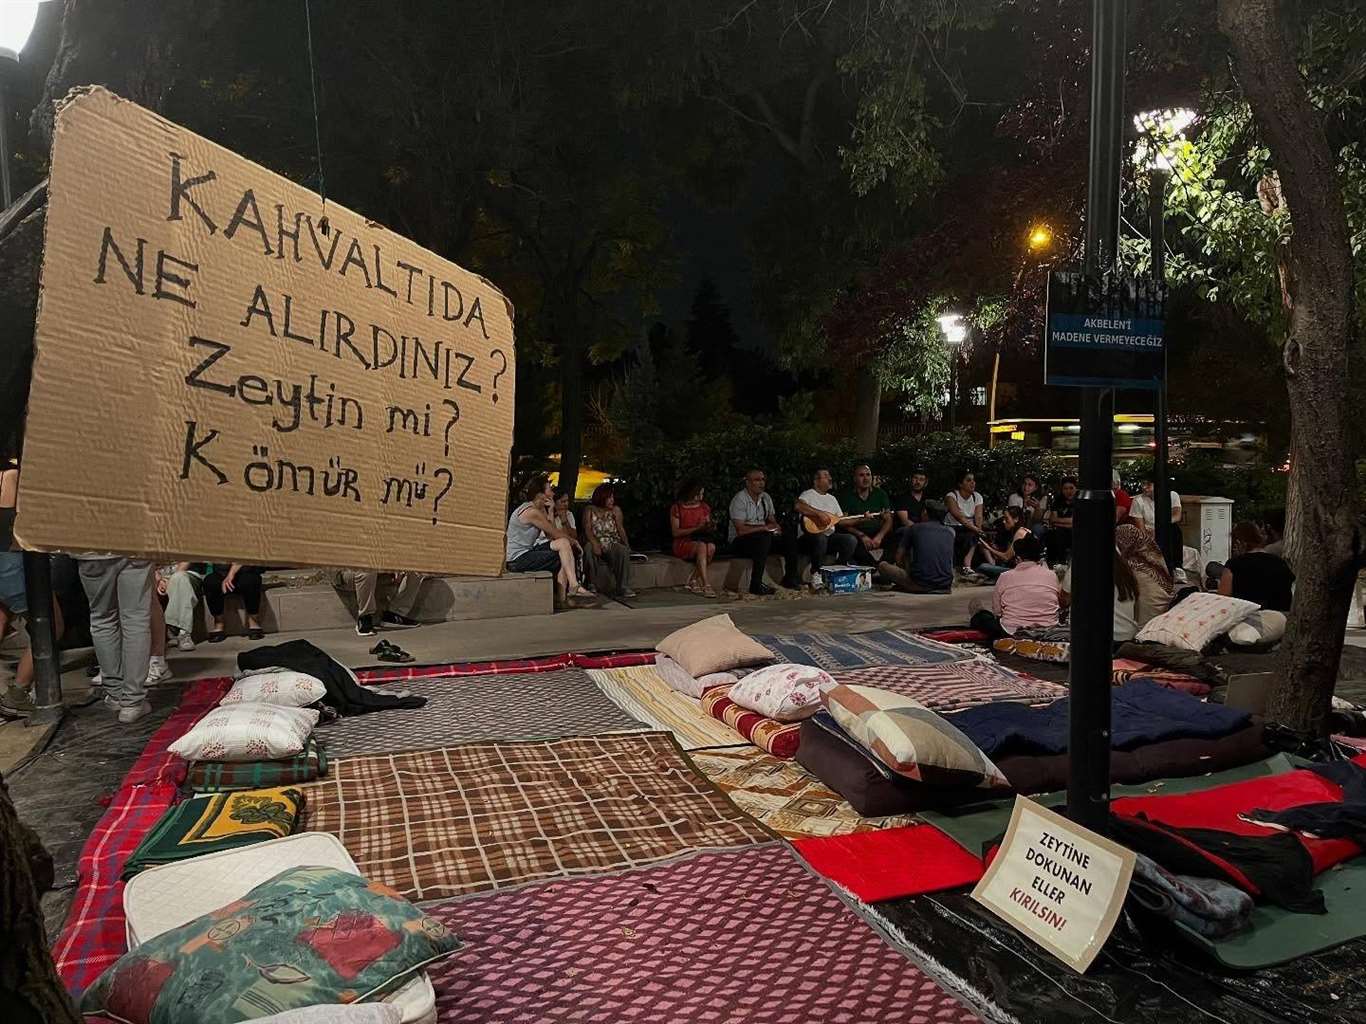 KAHVALTIDA
NE ALIRDINIZ?
Zeytin mi?
Kömür mü?
AKBELEN'İ
MADENE VERMEYECEĞİZ
ZEYTİNE
DOKUNAN
ELLER
KIRILSIN!